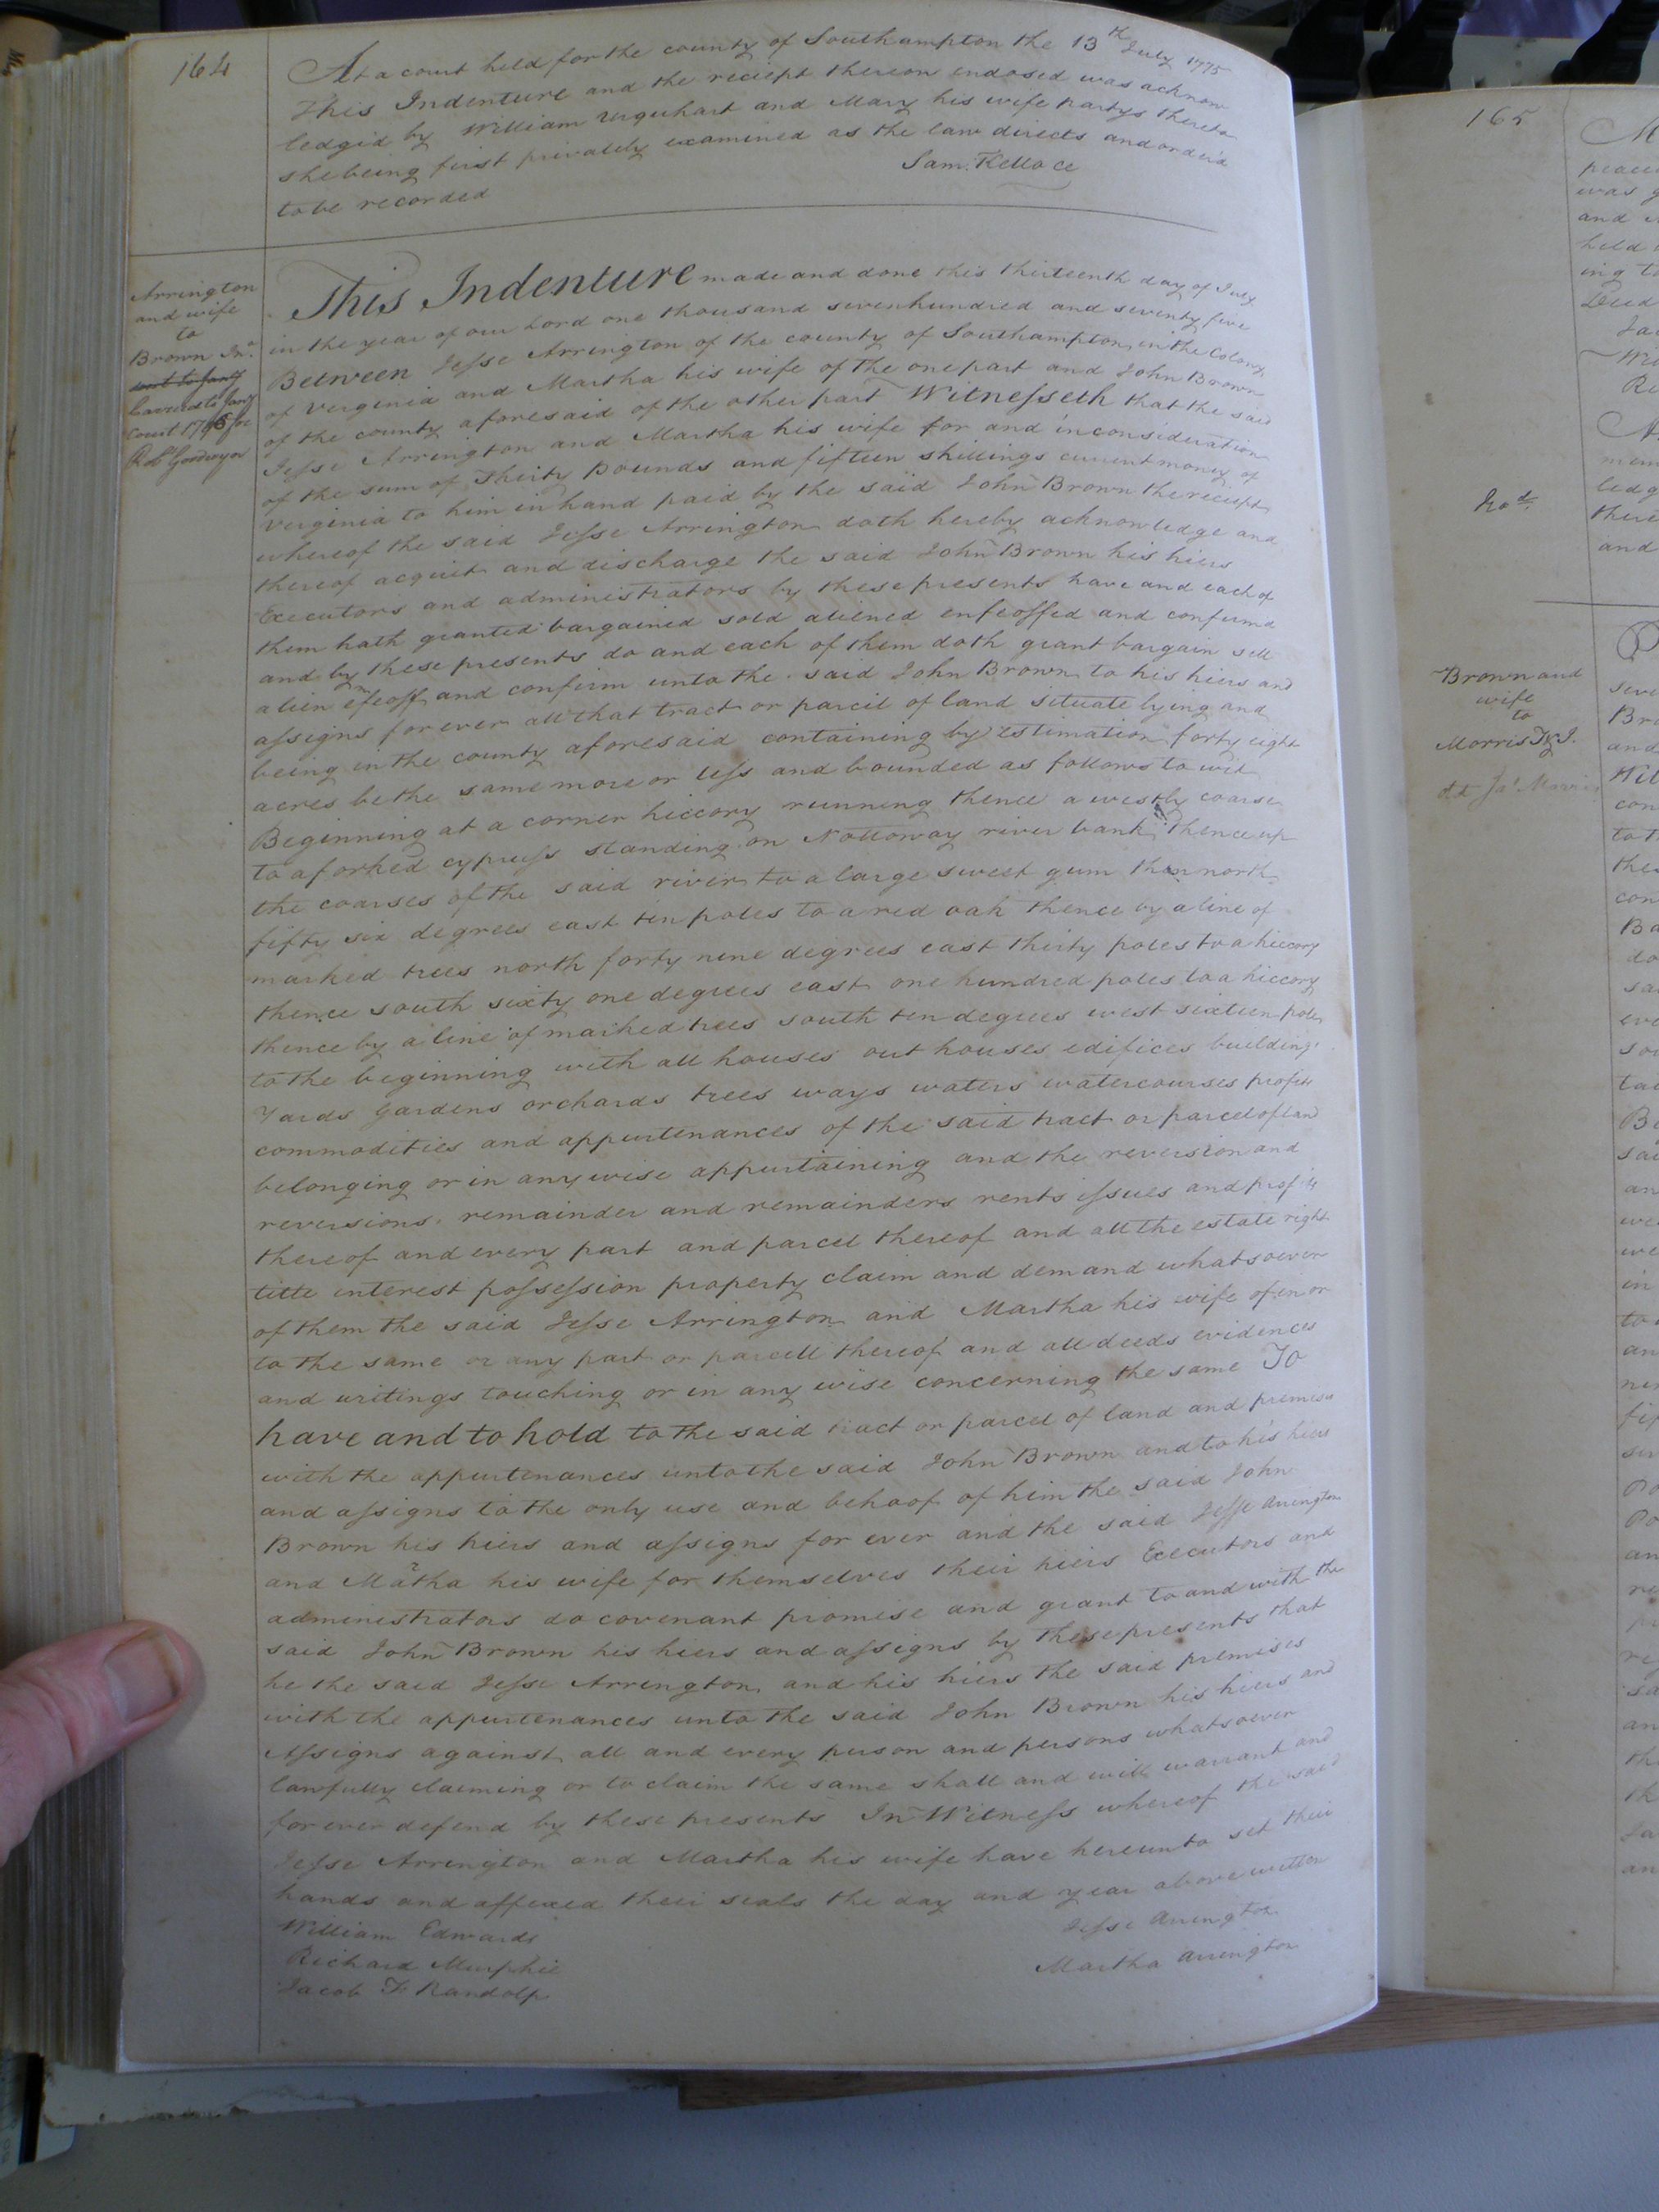 164
At a court held for the county of Southampton the 13th July 1775
This Indenture and the reciept thereon endosed was acknow
ledgid by William Urquhart and Mary his wife partys thereto
she being first privately examined as the law directs and orderd
to be recorded
Sam. Kello cc
Arrington
and wife
to
Brown Jno.
Court
This Indenture made and done this thirteenth day of July
in the year of our Lord one thousand sevenhundred and seventy five
Between Jesse Arrington of the county of Southampton in the Colony
of Verginia and Martha his wife of the one part and John Brown
of the county aforesaid of the other part Witnesseth that the said
Jesse Arrington and Martha his wife for and in consideration
of the sum of Thirty pounds and fifteen shillings current money of
Verginia to him in hand paid by the said John Brown the reciept
whereof the said Jesse Arrington doth hereby acknowledge and
thereof acquit and discharge the said John Brown his hiers
Executors and administrators by these presents have and each of
them hath granted bargained sold aliened enfeoffed and confirmd
and by these presents do and each of them doth grant bargain sell
alien enfeoff and confirm unto the said John Brown to his hiers and
assigns for ever all that tract or parcil of land situate lying and
being in the county aforesaid containing by estimation forty eight
acres be the same more or less and bounded as follows to wit
Beginning at a corner hiccory running thence a westly coarse
to a forked cypress standing on Nottoway river bank thence up
the coarses of the said river to a large sweet gum then north
fifty six degrees east ten poles to a red oak thence by a line of
marked trees north forty nine degrees east thirty poles to a hiccory
thence south sixty one degrees east one hundred poles to a hiccory
thence by a line of marked trees south ten degrees west sixteen poles
to the beginning with all houses out houses edifices buildings
Yards Gardens orchards trees ways waters watercourses profits
commodities and appurtenances of the said tract or parcel of land
belonging or in any wise appurtaining and the reversion and
reversions remainder and remainders rents issues and profits
thereof and every part and parcel thereof and all the estate right
title interest possession property claim and demand whatsoever
of them the said Jesse Arrington and Martha his wife of in or
to the same or any part or parcell thereof and all deeds evidences
and writings touching or in any wise concerning the same To
have and to hold to the said tract or parcel of land and premises
with the appurtenances unto the said John Brown and to his hiers
and assigns to the only use and behoof of him the said John
Brown his hiers and assigns for ever and the said Jesse Arrington
and Martha his wife for themselves their hiers Executors and
administrators do covenant promise and grant to and with the
said John Brown his hiers and assigns by these presents that
he the said Jesse Arrington and his hiers the said premises
with the appurtenances unto the said John Brown his hiers and
Assigns against all and every person and persons whatsoever
lawfully claiming or to claim the same shall and will warrant and
for ever defend by these presents In Witness whereof the said
Jesse Arrington and Martha his wife have hereunto set their
hands and affixed their seals the day and year above written
William Edwards
Richard Murphie
Jacob F Randolp
Jesse Arrington
Martha Arrington
165
Brown and
wife
to
Morris